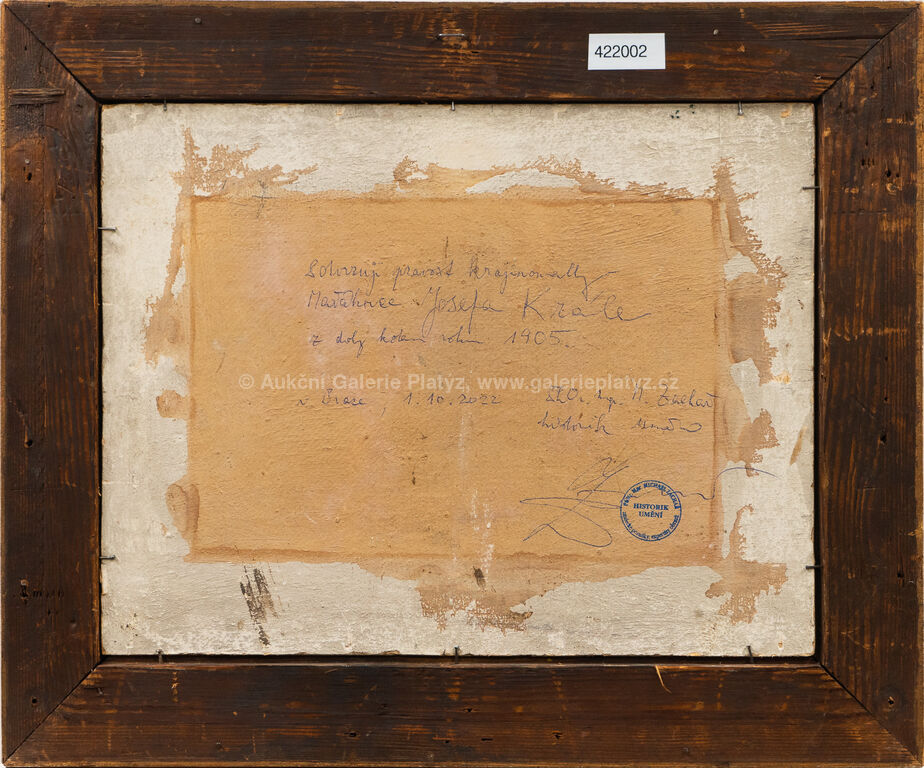 422002
Potvrzuji pravost krajinomalby
Mařákovce Josefa Krále
z doby kolem roku 1905.
© Aukční Galerie Platyz, www.galerieplatyz.cz
v Praze, 1.10.2022 PhDr. Mgr. M. Zachař
historik umění
PhDr. Mgr. MICHAEL ZACHAŘ
HISTORIK
UMĚNÍ